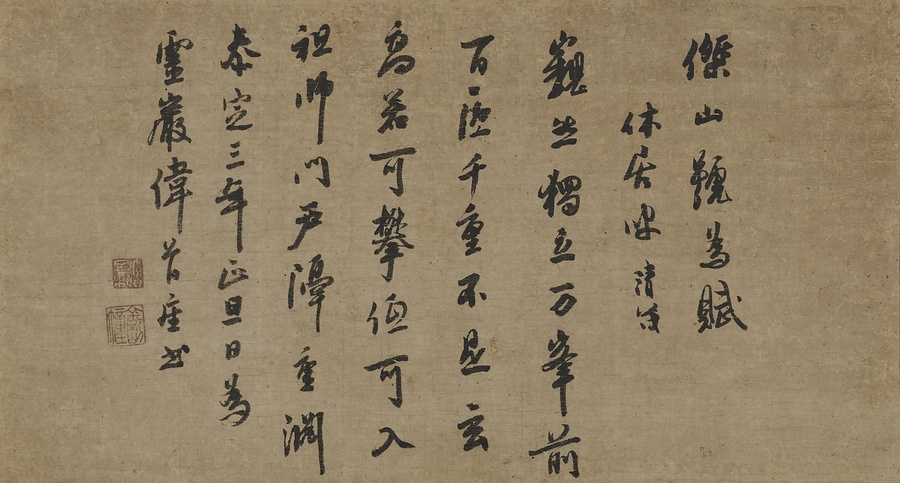 傑山號為賦
休居叟清茂
巍然獨立万峯前
百匝千重不是玄
高若可攀低可入
祖師門戶隔重淵
泰定三年正旦日為
靈巖偉首座書